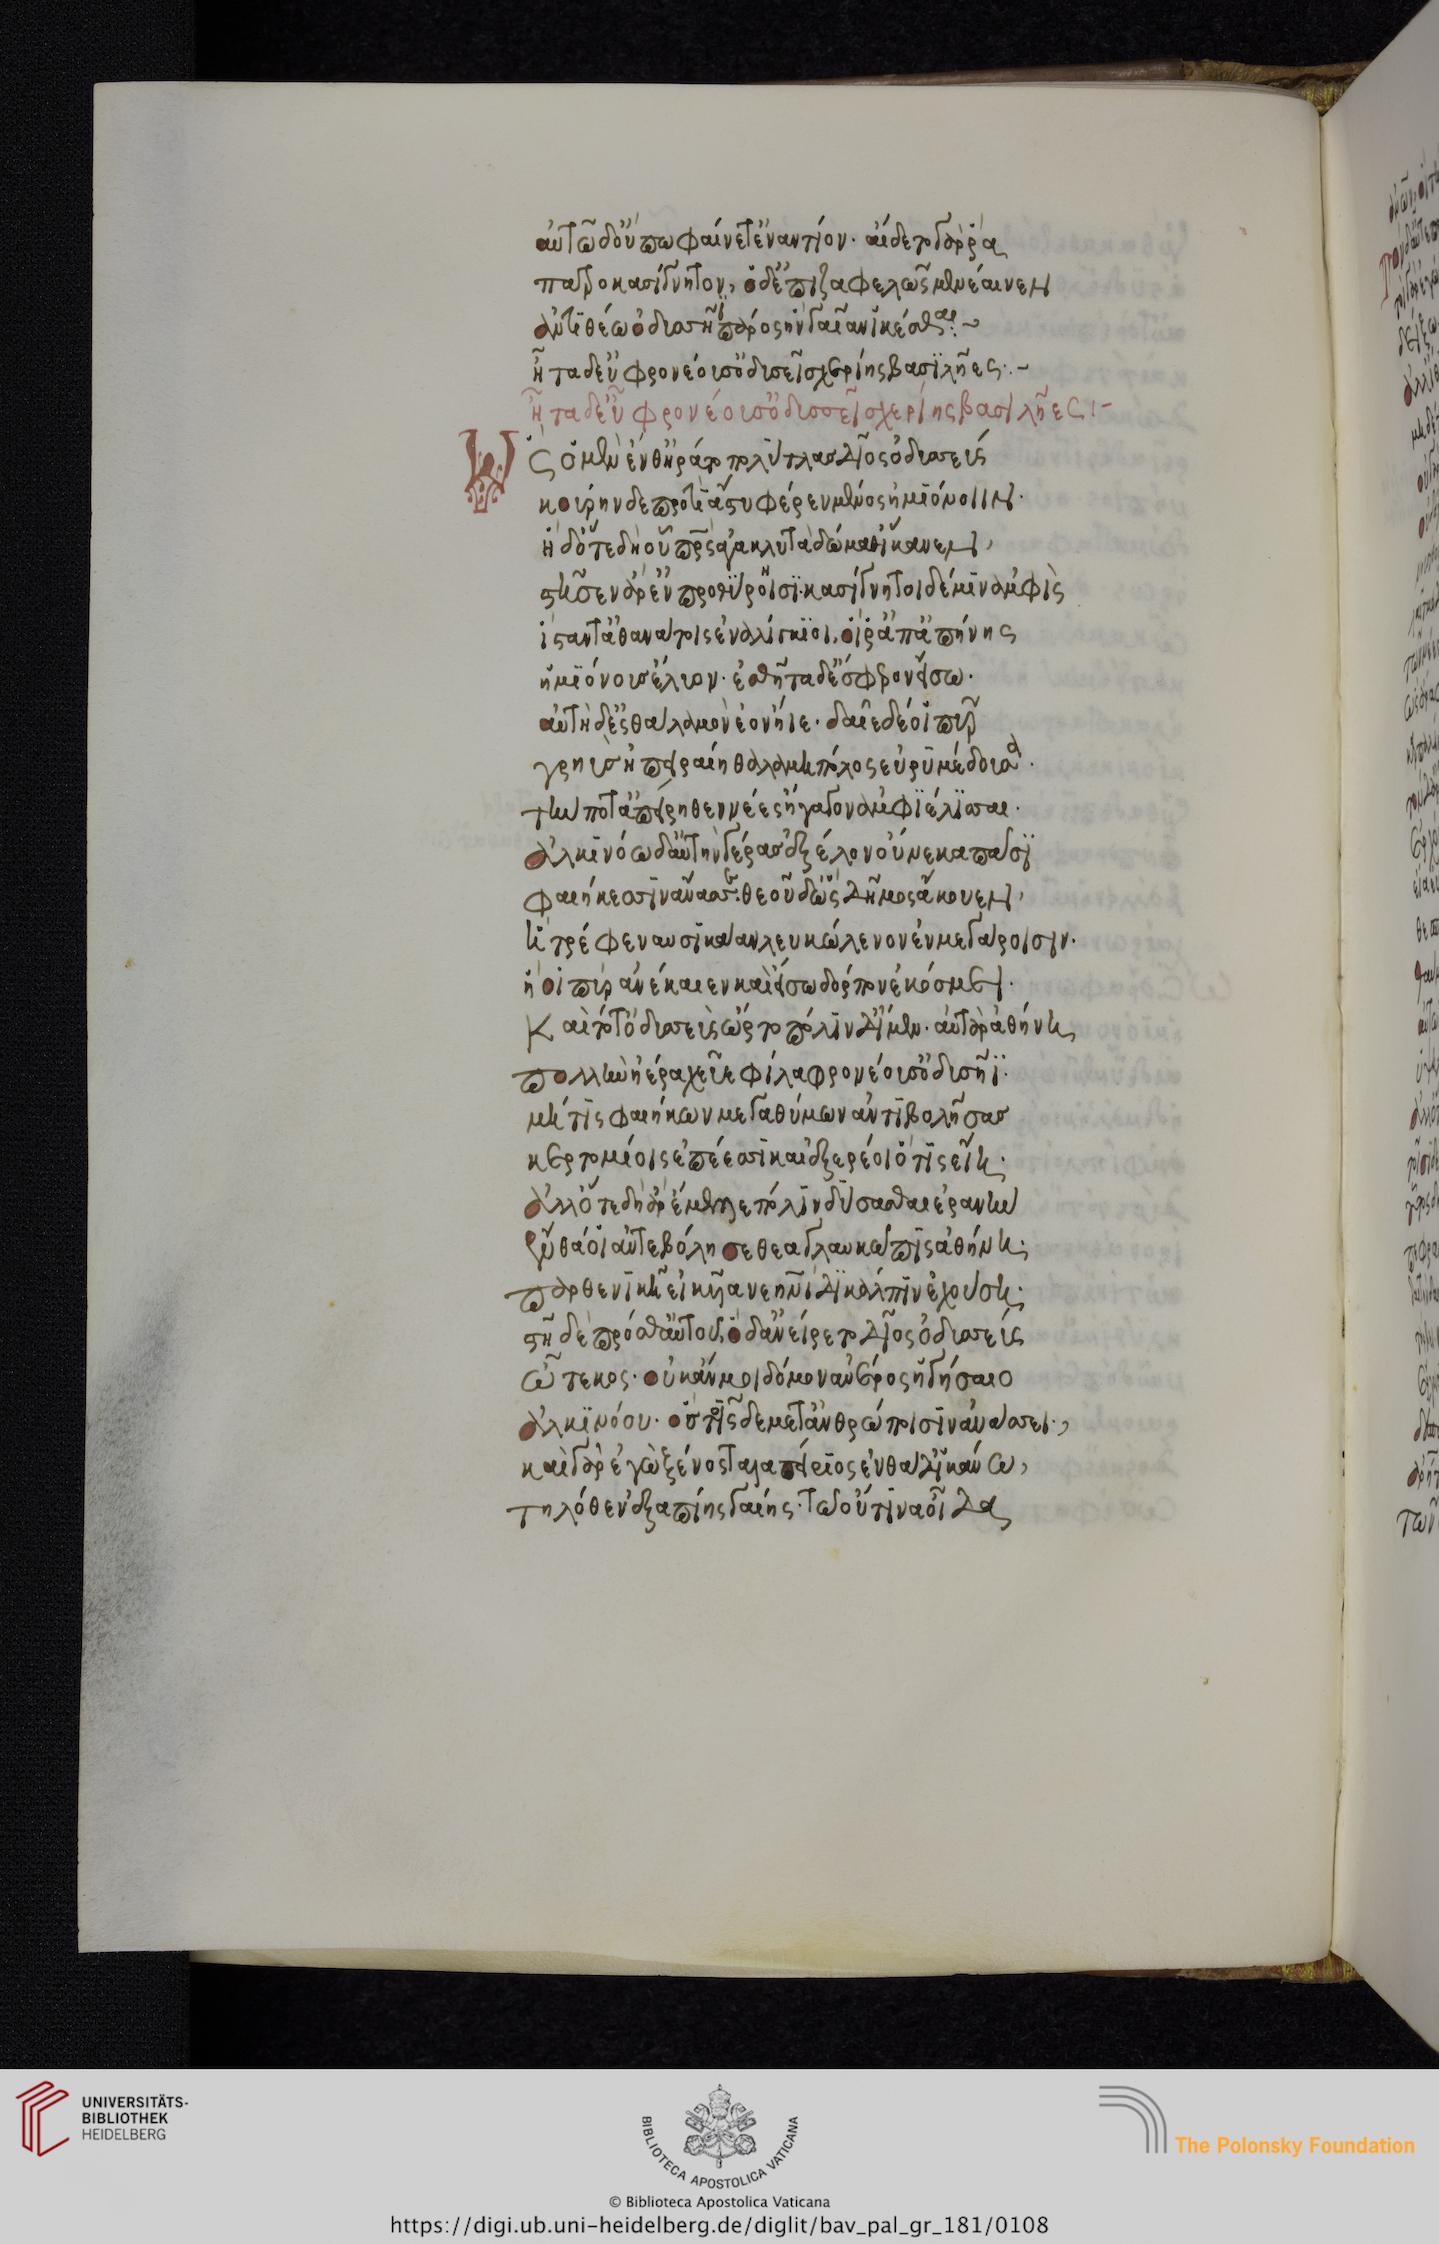 αὐτῶ δ' οὔπω φαίνετ' ἐναντίον· αἴδετο γάρ ῥα
πατροκασίγνητον, ὁ δ' ἐπιζαφελῶς μενέαινεν
ἀντιθέω ὀδυσσῆϊ πάρος ἣν γαῖαν ἱκέσθαι:~
ἦτα δ' εὐφρονέουσ' ὀδυσεῖ σχερίης βασιλῆες:~
ἦτα δ' εὐφρονέουσ' ὀδυσσεῖ σχερίης βασιλῆες:~
Ὣς ὁ μὲν ἔνθ' ἠρᾶτο πολύτλας δῖος ὀδυσσεύς
κούρην δὲ προτὶ ἄστυ φέρεν μένος ἡμιόνοιιν·
ἡ δ' ὅτε δὴ οὗ πατρὸς ἀγακλυτὰ δώμαθ' ἵκανεν,
στῆσεν ἄρ' ἐν προθύροισι· κασίγνητοι δέ μιν ἀμφὶς
ἵσταντ' ἀθανάτοις ἐναλίγκιοι, οἵ ῥ' ὑπ' ἀπήνης
ἡμιόνους ἔλυον· ἐσθῆτά δ' ἔσφερον εἴσω·
αὐτὴ δ' ἐς θάλαμον ἑὸν ἤιε· δαῖε δέ οἱ πῦρ
γρηῢς ἀπειραίη θαλαμηπόλος εὐρυμέδουσα·
τήν ποτ' ἀπείρηθεν νέες ἤγαγον ἀμφιέλισσαι·
ἀλκινόω δ' αὐτὴν γέρας ἔξελον οὕνεκα πᾶσι
φαιήκεσσιν ἄνασσε· θεοῦ δ' ὣς δῆμος ἄκουεν,
ἣ τρέφε ναυσικάαν λευκώλενον ἐν μεγάροισιν·
ἥ οἱ πῦρ ἀνέκαιεν καὶ εἴσω δόρπον ἐκόσμει·
Καὶ τότ' ὀδυσσεὺς ὦρτο πόλιν δ' ἴμεν· αὐτὰρ ἀθήνη
πολλὴν ἠέρα χεῦε φίλα φρονέουσ' ὀδυσῆϊ·
μή τις φαιήκων μεγαθύμων ἀντιβολήσας
κερτομέοις ἐπέεσσι καὶ ἐξερέοι ὅτις εἴη·
ἀλλ' ὅτε δὴ ἄρ' ἔμελλε πόλιν δύσασθαι ἐραννὴν
ἔνθά οἱ ἀντεβόλησε θεὰ γλαυκῶπις ἀθήνη·
παρθενικῆ εἰκυῖα νεήνιδι κάλπιν ἐχούση·
στῆ δὲ πρόσθ' αὐτοῦ, ὁ δ' ἀνείρετο δῖος ὀδυσσεύς
ὦ τέκος· οὐκ ἄν μοι δόμον ἀνέρος ἡγήσαιο
ἀλκινόου· ὃς τοῖσδε μετ' ἀνθρώποισιν ἀνάσσει·,
καὶ γὰρ ἐγὼ ξένος ταλαπείριος ἐνθάδ' ἱκάνω,
τηλόθεν ἐξ ἀπίης γαίης· τῶ οὔτινα οἶδα
UNIVERSITÄTS-
BIBLIOTHEK
HEIDELBERG
BIBLIOTECA APOSTOLICA VATICANA
© Biblioteca Apostolica Vaticana
The Polonsky Foundation
https://digi.ub.uni-heidelberg.de/diglit/bav_pal_gr_181/0108